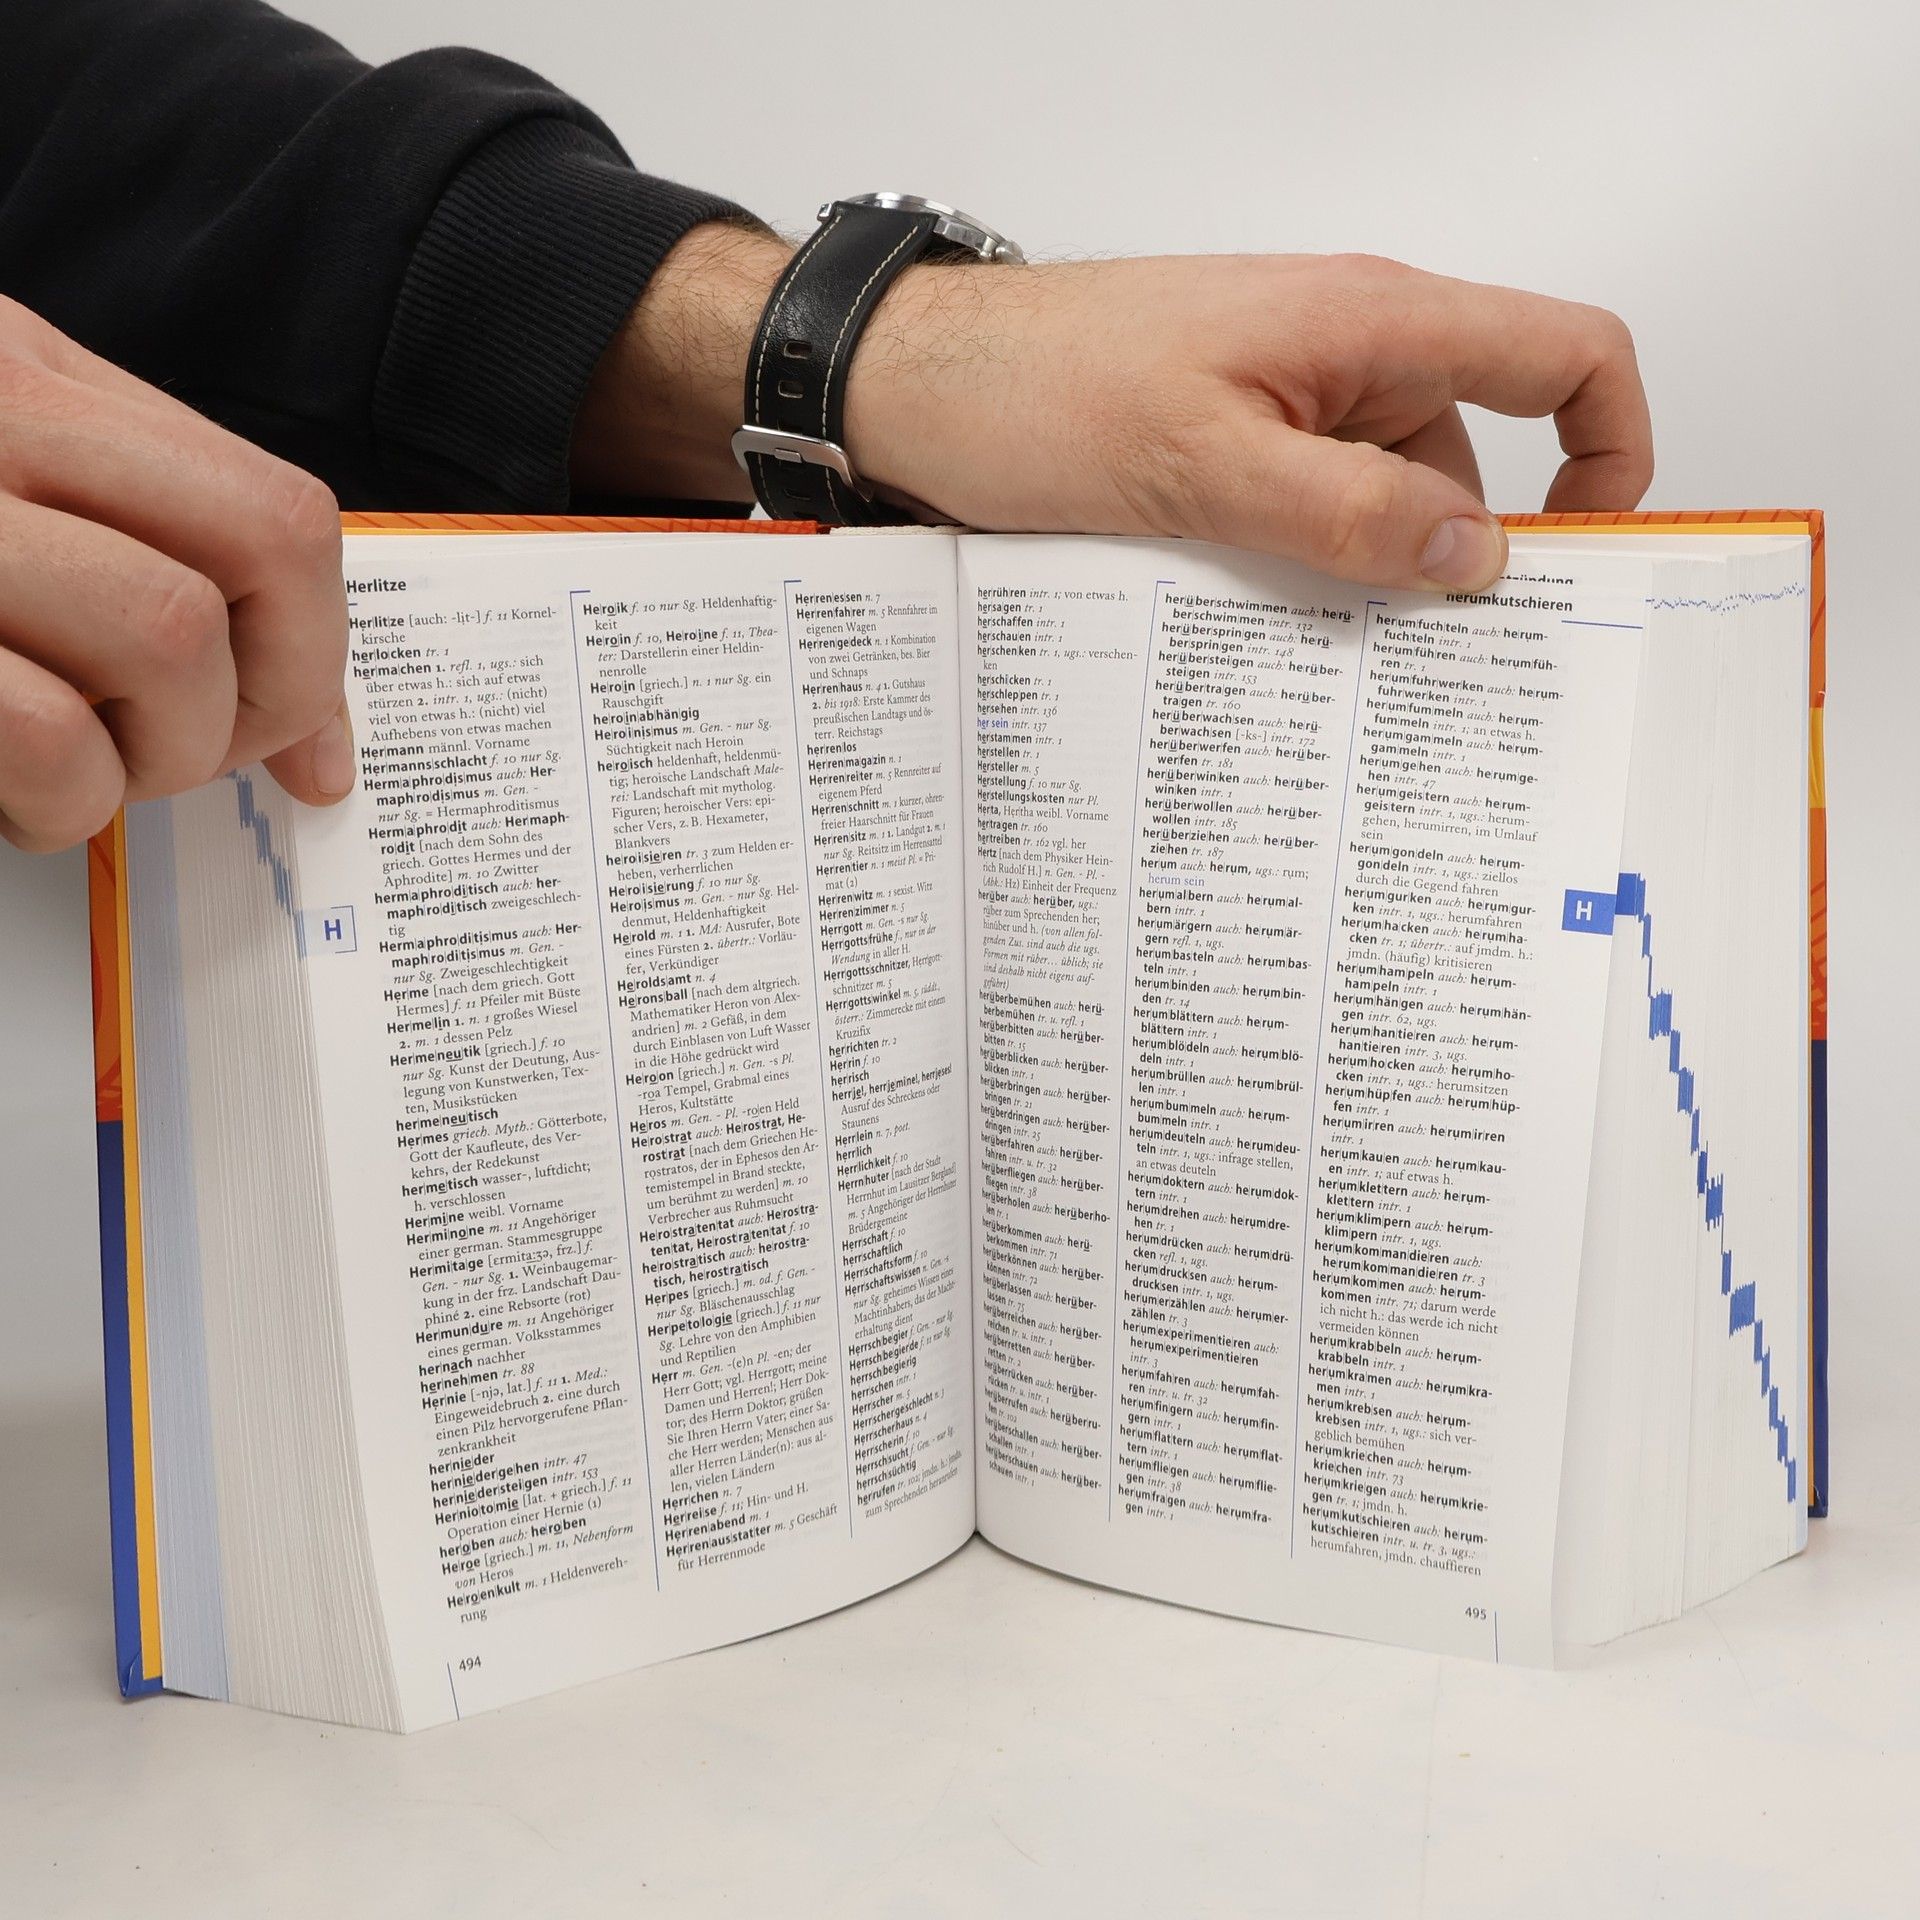 Herlitze
Her|lit|ze [auch: -lit-] f. 11 Kornel-
kirsche
her|lo|cken tr. 1
her|ma|chen 1. refl. 1, ugs.: sich
über etwas h.: sich auf etwas
stürzen 2. intr. 1, ugs.: (nicht)
viel von etwas h.: (nicht) viel
Aufhebens von etwas machen
Her|mann männl. Vorname
Her|manns|schlacht f. 10 nur Sg.
Herm|a|phro|dis|mus auch: Her-
maph|ro|dis|mus m. Gen. -
nur Sg. = Hermaphroditismus
Herm|a|phro|dit auch: Her|maph-
ro|dit [nach dem Sohn des
griech. Gottes Hermes und der
Aphrodite] m. 10 Zwitter
herm|a|phro|di|tisch auch: her-
maph|ro|di|tisch zweigeschlech-
tig
Herm|a|phro|di|tis|mus auch: Her-
maph|ro|di|tis|mus m. Gen. -
nur Sg. Zweigeschlechtigkeit
Her|me [nach dem griech. Gott
Hermes] f. 11 Pfeiler mit Büste
Her|me|lin 1. n. 1 großes Wiesel
2. m. 1 dessen Pelz
Her|me|neu|tik [griech.] f. 10
nur Sg. Kunst der Deutung, Aus-
legung von Kunstwerken, Tex-
ten, Musikstücken
her|me|neu|tisch
Her|mes griech. Myth.: Götterbote,
Gott der Kaufleute, des Ver-
kehrs, der Redekunst
her|me|tisch wasser-, luftdicht;
h. verschlossen
Her|mi|ne weibl. Vorname
Her|mi|no|ne m. 11 Angehöriger
einer german. Stammesgruppe
Her|mi|ta|ge [ɛrmita:ʒə, frz.] f.
Gen. - nur Sg. 1. Weinbaugemar-
kung in der frz. Landschaft Dau-
phiné 2. eine Rebsorte (rot)
Her|mun|du|re m. 11 Angehöriger
eines german. Volksstammes
her|nach nachher
her|neh|men tr. 88
Her|nie [-njə, lat.] f. 11 1. Med.:
Eingeweidebruch 2. eine durch
einen Pilz hervorgerufene Pflan-
zenkrankheit
her|nie|der
her|nie|der|ge|hen intr. 47
her|nie|der|stei|gen intr. 153
Her|ni|o|to|mie [lat. + griech.] f. 11
Operation einer Hernie (1)
her|o|ben auch: he|ro|ben
He|roe [griech.] m. 11, Nebenform
von Heros
He|ro|en|kult m. 1 Heldenvereh-
rung
He|ro|ik f. 10 nur Sg. Heldenhaftig-
keit
He|ro|in f. 10, He|ro|i|ne f. 11, Thea-
ter: Darstellerin einer Heldin-
nenrolle
He|ro|in [griech.] n. 1 nur Sg. ein
Rauschgift
he|ro|in|ab|hän|gig
He|ro|i|nis|mus m. Gen. - nur Sg.
Süchtigkeit nach Heroin
he|ro|isch heldenhaft, heldenmü-
tig; heroische Landschaft Male-
rei: Landschaft mit mytholog.
Figuren; heroischer Vers: epi-
scher Vers, z. B. Hexameter,
Blankvers
he|ro|i|sie|ren tr. 3 zum Helden er-
heben, verherrlichen
He|ro|i|sie|rung f. 10 nur Sg.
He|ro|is|mus m. Gen. - nur Sg. Hel-
denmut, Heldenhaftigkeit
He|rold m. 1 1. MA: Ausrufer, Bote
eines Fürsten 2. übertr.: Vorläu-
fer, Verkündiger
He|rolds|amt n. 4
He|rons|ball [nach dem altgriech.
Mathematiker Heron von Alex-
andrien] m. 2 Gefäß, in dem
durch Einblasen von Luft Wasser
in die Höhe gedrückt wird
He|ro|on [griech.] n. Gen. -s Pl.
-roa Tempel, Grabmal eines
Heros, Kultstätte
He|ros m. Gen. - Pl. -ro|en Held
He|ro|strat auch: He|rost|rat, He-
rost|rat [nach dem Griechen He-
rostratos, der in Ephesos den Ar-
temistempel in Brand steckte,
um berühmt zu werden] m. 10
Verbrecher aus Ruhmsucht
He|ro|stra|ten|tat auch: He|rost|ra-
ten|tat, He|rost|ra|ten|tat f. 10
he|ro|stra|tisch auch: he|rost|ra-
tisch, he|rost|ra|tisch
Her|pes [griech.] m. od. f. Gen. -
nur Sg. Bläschenausschlag
Her|pe|to|lo|gie [griech.] f. 11 nur
Sg. Lehre von den Amphibien
und Reptilien
Herr m. Gen. -(e)n Pl. -en; der
Herr Gott; vgl. Herrgott; meine
Damen und Herren!; Herr Dok-
tor; des Herrn Doktor; grüßen
Sie Ihren Herrn Vater; einer Sa-
che Herr werden; Menschen aus
aller Herren Länder(n): aus al-
len, vielen Ländern
Herr|chen n. 7
Her|rei|se f. 11; Hin- und H.
Her|ren|abend m. 1
Her|ren|aus|stat|ter m. 5 Geschäft
für Herrenmode
Her|ren|es|sen n. 7
Her|ren|fah|rer m. 5 Rennfahrer im
eigenen Wagen
Her|ren|ge|deck n. 1 Kombination
von zwei Getränken, bes. Bier
und Schnaps
Her|ren|haus n. 4 1. Gutshaus
2. bis 1918: Erste Kammer des
preußischen Landtags und ös-
terr. Reichstags
her|ren|los
Her|ren|ma|ga|zin n. 1
Her|ren|rei|ter m. 5 Rennreiter auf
eigenem Pferd
Her|ren|schnitt m. 1 kurzer, ohren-
freier Haarschnitt für Frauen
Her|ren|sitz m. 1 1. Landgut 2. m. 1
nur Sg. Reitsitz im Herrensattel
Her|ren|tier n. 1 meist Pl. = Pri-
mat (2)
Her|ren|witz m. 1 sexist. Witz
Her|ren|zim|mer n. 5
Herr|gott m. Gen. -s nur Sg.
Herr|gotts|frü|he f., nur in der
Wendung in aller H.
Herr|gotts|schnit|zer, Herrgott-
schnit|zer m. 5
Herr|gotts|win|kel m. 5, süddt.,
österr.: Zimmerecke mit einem
Kruzifix
her|rich|ten tr. 2
Her|rin f. 10
her|risch
herr|je!, herr|je|mi|nel, herr|je|ses!
Ausruf des Schreckens oder
Staunens
Herr|lein n. 7, poet.
herr|lich
Herr|lich|keit f. 10
Herrn|hu|ter [nach der Stadt
Herrnhut im Lausitzer Bergland]
m. 5 Angehöriger der Herrnhuter
Brüdergemeine
Herr|schaft f. 10
herr|schaft|lich
Herr|schafts|form f. 10
Herr|schafts|wis|sen n. Gen. -s
nur Sg. geheimes Wissen eines
Machtinhabers, das der Macht-
erhaltung dient
Herrsch|be|gier f. Gen. - nur Sg.
Herrsch|be|gier|de f. 11 nur Sg.
herrsch|be|gie|rig
herr|schen intr. 1
Herr|scher m. 5
Herr|scher|ge|schlecht n. 3
Herr|scher|haus n. 4
Herr|sche|rin f. 10
Herrsch|sucht f. Gen. - nur Sg.
herrsch|süch|tig
her|ru|fen tr. 102; jmdn. h.: jmdn.
zum Sprechenden heranrufen
H
494
herumkutschieren
her|rüh|ren intr. 1; von etwas h.
her|sa|gen tr. 1
her|schaf|fen intr. 1
her|schau|en intr. 1
her|schen|ken tr. 1, ugs.: verschen-
ken
her|schi|cken tr. 1
her|schlep|pen tr. 1
her|se|hen intr. 136
her sein intr. 137
her|stam|men intr. 1
her|stel|len tr. 1
Her|stel|ler m. 5
Her|stel|lung f. 10 nur Sg.
Her|stel|lungs|kos|ten nur Pl.
Her|ta, Her|tha weibl. Vorname
her|tra|gen tr. 160
her|trei|ben tr. 162 vgl. her
Hertz [nach dem Physiker Hein-
rich Rudolf H.] n. Gen. - Pl. -
(Abk.: Hz) Einheit der Frequenz
her|über auch: he|rü|ber, ugs.:
rüber zum Sprechenden her;
hinüber und h. (von allen fol-
genden Zus. sind auch die ugs.
Formen mit rüber… üblich; sie
sind deshalb nicht eigens auf-
geführt)
her|über|be|mü|hen auch: he|rü-
ber|be|mü|hen tr. u. refl. 1
her|über|bit|ten auch: he|rü|ber-
bit|ten tr. 15
her|über|bli|cken auch: he|rü|ber-
bli|cken intr. 1
her|über|brin|gen auch: he|rü|ber-
brin|gen tr. 21
her|über|drin|gen auch: he|rü|ber-
drin|gen intr. 25
her|über|fah|ren auch: he|rü|ber-
fah|ren intr. u. tr. 32
her|über|flie|gen auch: he|rü|ber-
flie|gen intr. 38
her|über|ho|len auch: he|rü|ber|ho-
len tr. 1
her|über|kom|men auch: he|rü-
ber|kom|men intr. 71
her|über|kön|nen auch: he|rü|ber-
kön|nen intr. 72
her|über|las|sen auch: he|rü|ber-
las|sen tr. 75
her|über|rei|chen auch: he|rü|ber-
rei|chen tr. u. intr. 1
her|über|ret|ten auch: he|rü|ber-
ret|ten tr. 2
her|über|rü|cken auch: he|rü|ber-
rü|cken tr. u. intr. 1
her|über|ru|fen auch: he|rü|ber|ru-
fen tr. 102
her|über|schal|len auch: he|rü|ber-
schal|len intr. 1
her|über|schau|en auch: he|rü|ber-
schau|en intr. 1
her|über|schwim|men auch: he|rü-
ber|schwim|men intr. 132
her|über|sprin|gen auch: he|rü-
ber|sprin|gen intr. 148
her|über|stei|gen auch: he|rü|ber-
stei|gen intr. 153
her|über|tra|gen auch: he|rü|ber-
tra|gen tr. 160
her|über|wach|sen auch: he|rü-
ber|wach|sen [-ks-] intr. 172
her|über|wer|fen auch: he|rü|ber-
wer|fen tr. 181
her|über|win|ken auch: he|rü|ber-
win|ken intr. 1
her|über|wol|len auch: he|rü|ber-
wol|len intr. 185
her|über|zie|hen auch: he|rü|ber-
zie|hen tr. 187
her|um auch: he|rum, ugs.: rum;
herum sein
her|um|al|bern auch: he|rum|al-
bern intr. 1
her|um|är|gern auch: he|rum|är-
gern refl. 1, ugs.
her|um|bas|teln auch: he|rum|bas-
teln intr. 1
her|um|bin|den auch: he|rum|bin-
den tr. 14
her|um|blät|tern auch: he|rum-
blät|tern intr. 1
her|um|blö|deln auch: he|rum|blö-
deln intr. 1
her|um|brül|len auch: he|rum|brül-
len intr. 1
her|um|bum|meln auch: he|rum-
bum|meln intr. 1
her|um|deu|teln auch: he|rum|deu-
teln intr. 1, ugs.: infrage stellen,
an etwas deuteln
her|um|dok|tern auch: he|rum|dok-
tern intr. 1
her|um|dre|hen auch: he|rum|dre-
hen tr. 1
her|um|drü|cken auch: he|rum|drü-
cken refl. 1, ugs.
her|um|druck|sen auch: he|rum-
druck|sen intr. 1, ugs.
her|um|er|zäh|len auch: he|rum|er-
zäh|len tr. 3
her|um|ex|pe|ri|men|tie|ren auch:
he|rum|ex|pe|ri|men|tie|ren
intr. 3
her|um|fah|ren auch: he|rum|fah-
ren intr. u. tr. 32
her|um|fin|gern auch: he|rum|fin-
gern intr. 1
her|um|flat|tern auch: he|rum|flat-
tern intr. 1
her|um|flie|gen auch: he|rum|flie-
gen intr. 38
her|um|fra|gen auch: he|rum|fra-
gen intr. 1
her|um|fuch|teln auch: he|rum-
fuch|teln intr. 1
her|um|füh|ren auch: he|rum|füh-
ren tr. 1
her|um|fuhr|wer|ken auch: he|rum-
fuhr|wer|ken intr. 1
her|um|fum|meln auch: he|rum-
fum|meln intr. 1; an etwas h.
her|um|gam|meln auch: he|rum-
gam|meln intr. 1
her|um|ge|hen auch: he|rum|ge-
hen intr. 47
her|um|geis|tern auch: he|rum-
geis|tern intr. 1, ugs.: herum-
gehen, herumirren, im Umlauf
sein
her|um|gon|deln auch: he|rum-
gon|deln intr. 1, ugs.: ziellos
durch die Gegend fahren
her|um|gur|ken auch: he|rum|gur-
ken intr. 1, ugs.: herumfahren
her|um|ha|cken auch: he|rum|ha-
cken tr. 1; übertr.: auf jmdm. h.:
jmdn. (häufig) kritisieren
her|um|ham|peln auch: he|rum-
ham|peln intr. 1
her|um|hän|gen auch: he|rum|hän-
gen intr. 62, ugs.
her|um|han|tie|ren auch: he|rum-
han|tie|ren intr. 3, ugs.
her|um|ho|cken auch: he|rum|ho-
cken intr. 1, ugs.: herumsitzen
her|um|hüp|fen auch: he|rum|hüp-
fen intr. 1
her|um|ir|ren auch: he|rum|ir|ren
intr. 1
her|um|kau|en auch: he|rum|kau-
en intr. 1; auf etwas h.
her|um|klet|tern auch: he|rum-
klet|tern intr. 1
her|um|klim|pern auch: he|rum-
klim|pern intr. 1, ugs.
her|um|kom|man|die|ren auch:
he|rum|kom|man|die|ren tr. 3
her|um|kom|men auch: he|rum-
kom|men intr. 71; darum werde
ich nicht h.: das werde ich nicht
vermeiden können
her|um|krab|beln auch: he|rum-
krab|beln intr. 1
her|um|kra|men auch: he|rum|kra-
men intr. 1
her|um|kreb|sen auch: he|rum-
kreb|sen intr. 1, ugs.: sich ver-
geblich bemühen
her|um|krie|chen auch: he|rum-
krie|chen intr. 73
her|um|krie|gen auch: he|rum|krie-
gen tr. 1; jmdn. h.
her|um|kut|schie|ren auch: he|rum-
kut|schie|ren intr. u. tr. 3, ugs.:
herumfahren, jmdn. chauffieren
H
495